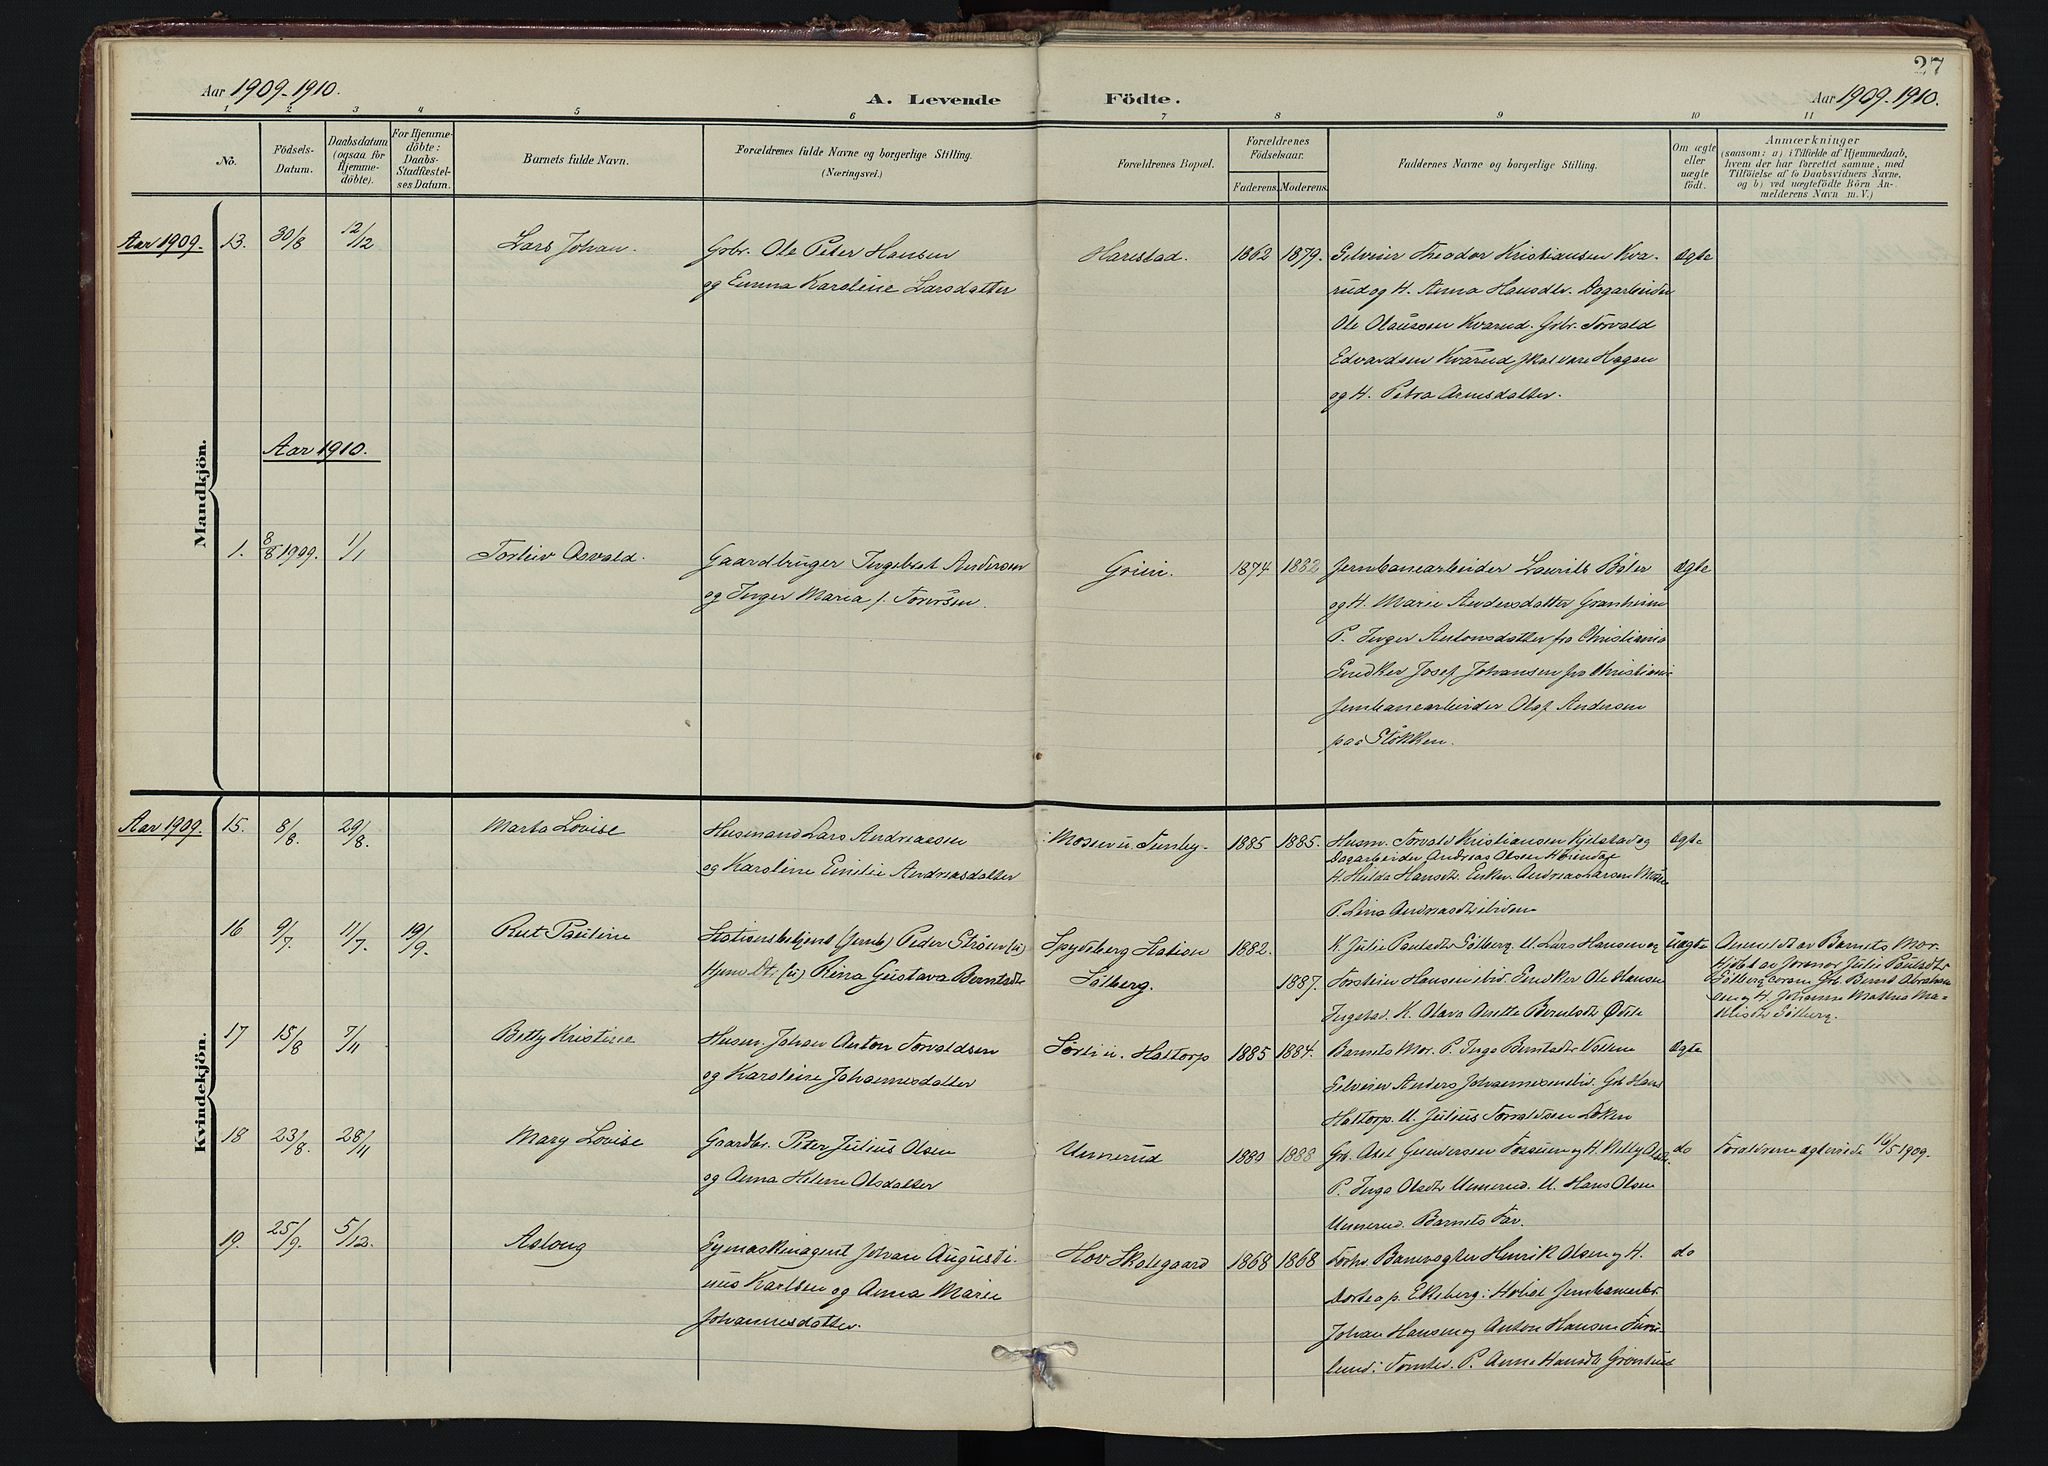 27
Aar 1909-1910.
A. Levende Födte.
Aar 1909-1910.
1 2 3 4 5 6 7 8 9 10 11
No.
Födsels-
Datum.
Daabsdatum
(ogsaa for
Hjemme-
döbte).
For Hjemme-
döbte:
Daabs-
Stadfæstel-
ses Datum.
Barnets fulde Navn.
Forældrenes fulde Navne og borgerlige Stilling.
(Næringsvei.)
Forældrenes Bopæl.
Forældrenes
Födselsaar.
Faderens. Moderens.
Faddernes Navne og borgerlige Stilling.
Om ægte
eller
uægte
födt.
Anmærkninger
(saasom: a) i Tilfælde af Hjemmedaab,
hvem der har forrettet samme, med
Tilföielse af to Daabsvidners Navne,
og b) ved uægtefödte Börn An-
melderens Navn m. V.)
Mandkjön.
Aar 1909. 13. 30/8 12/12 Lars Johan. Gbr. Ole Peter Hansen
og Emma Karoline Larsdatter
Harestad. 1862 1879.
Selveier Theodor Kristiansen Kva-
rud og H. Anna Hansdtr. Dagarbeider
Ole Olaussen Kvarud. Gbr. Torvald
Edvardsen Kvarud skal være Hagen
og H. Petra Arnesdatter.
Ægte
Aar 1910.
1. 8/8 1909. 1/1 Torleiv Osvald. Gaardbruger Ingebret Andersen
og Inger Maria f. Torersen.
1874 1882
Jernbanearbeider Laurits Böler
og H. Marie Andersdatter Granheim
P. Inger Antonsdatter fra Christiania
Snedker Josef Johansen fra Christiania
Jernbanearbeider Olaf Andersen
paa Stokken.
Ægte
Kvindekjön.
Aar 1909. 15. 8/8 29/8 Marta Lovise Husmand Lars Andreassen
og Karoline Emilie Andreasdatter
Mosen u. 1885 1885.
Husm. Torvald Kristiansen Kjelstad og
Dagarbeider Andreas Olsen
H. Hilda Hansdtr. Enkem. Andreas Larsen Mosen
P. Lina Andreasdtr ibidem
Ægte
16 9/7 11/7 19/9 Rut Pauline Stationsbetjent (Jernb) Peder Ström (u)
Hjemv. Dtr. (u) Rina Gustava Berntsdtr
Spydeberg Station
Solberg.
1882.
1887.
K. Julie Paulsdtr Solberg. U. Lars Hansen og
Torstein Hansen ibid. Snedker Ole Hansen
Ingstad. K. Olava Anette Berntsdtr
Uægte
Anmeldt av Barnets Mor.
Hjdöbt av Jormor Julie Paulsdtr
Solberg coram Gb. Bernt Abraham
sen og H. Johanne Mathea Ma-
Solberg.
17 15/8 7/11 Betty Kristine Husm. Johan Anton Torvaldsen
og Karoline Johannesdatter
Sorti u. Hattorp 1885 1884.
Barnets Mor. P. Inga Berntsdtr Vollene
Selveier Anders Johannesen ibid. Gb. Hans
Hattorp. U. Julius Torvaldsen Löken
Ægte
18 23/8. 28/11 Mary Lovise Gaardbr. Peter Julius Olsen
og Anna Helene Olsdatter
Unnerud 1880 1888
Gb. Axel Gundersen Fossum og H. Nelly
P. Inga Olsdtr Unnerud. U. Hans Olsen
Unnerud. Barnets Far.
do
Forældrene ægteviede 16/5 1909.
19. 25/9. 5/12. Aslaug Symaskinagent Johan Augusti-
nus Karlsen og Anna Marie
Johannesdatter.
Hov Skolegaard 1868 1868
Forhv. Banevogter Henrik Olsen og H.
Dortea p. Ekeberg i Höböl Jernbanearbr.
Johan Hansen og Anton Hansen Furu-
lund i Tomter. P. Anna Hansdtr Grönsund
do